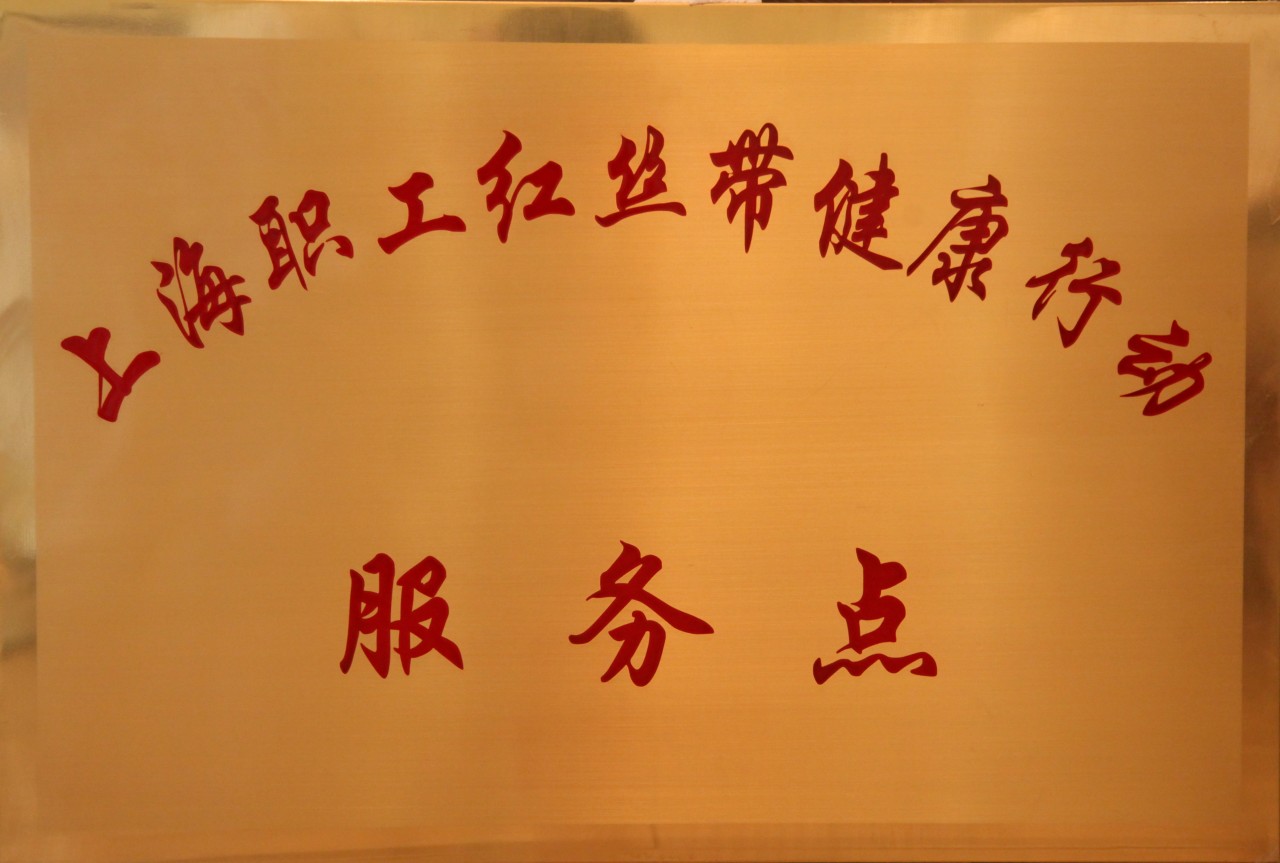 上海职工红丝带健康行动
服务点